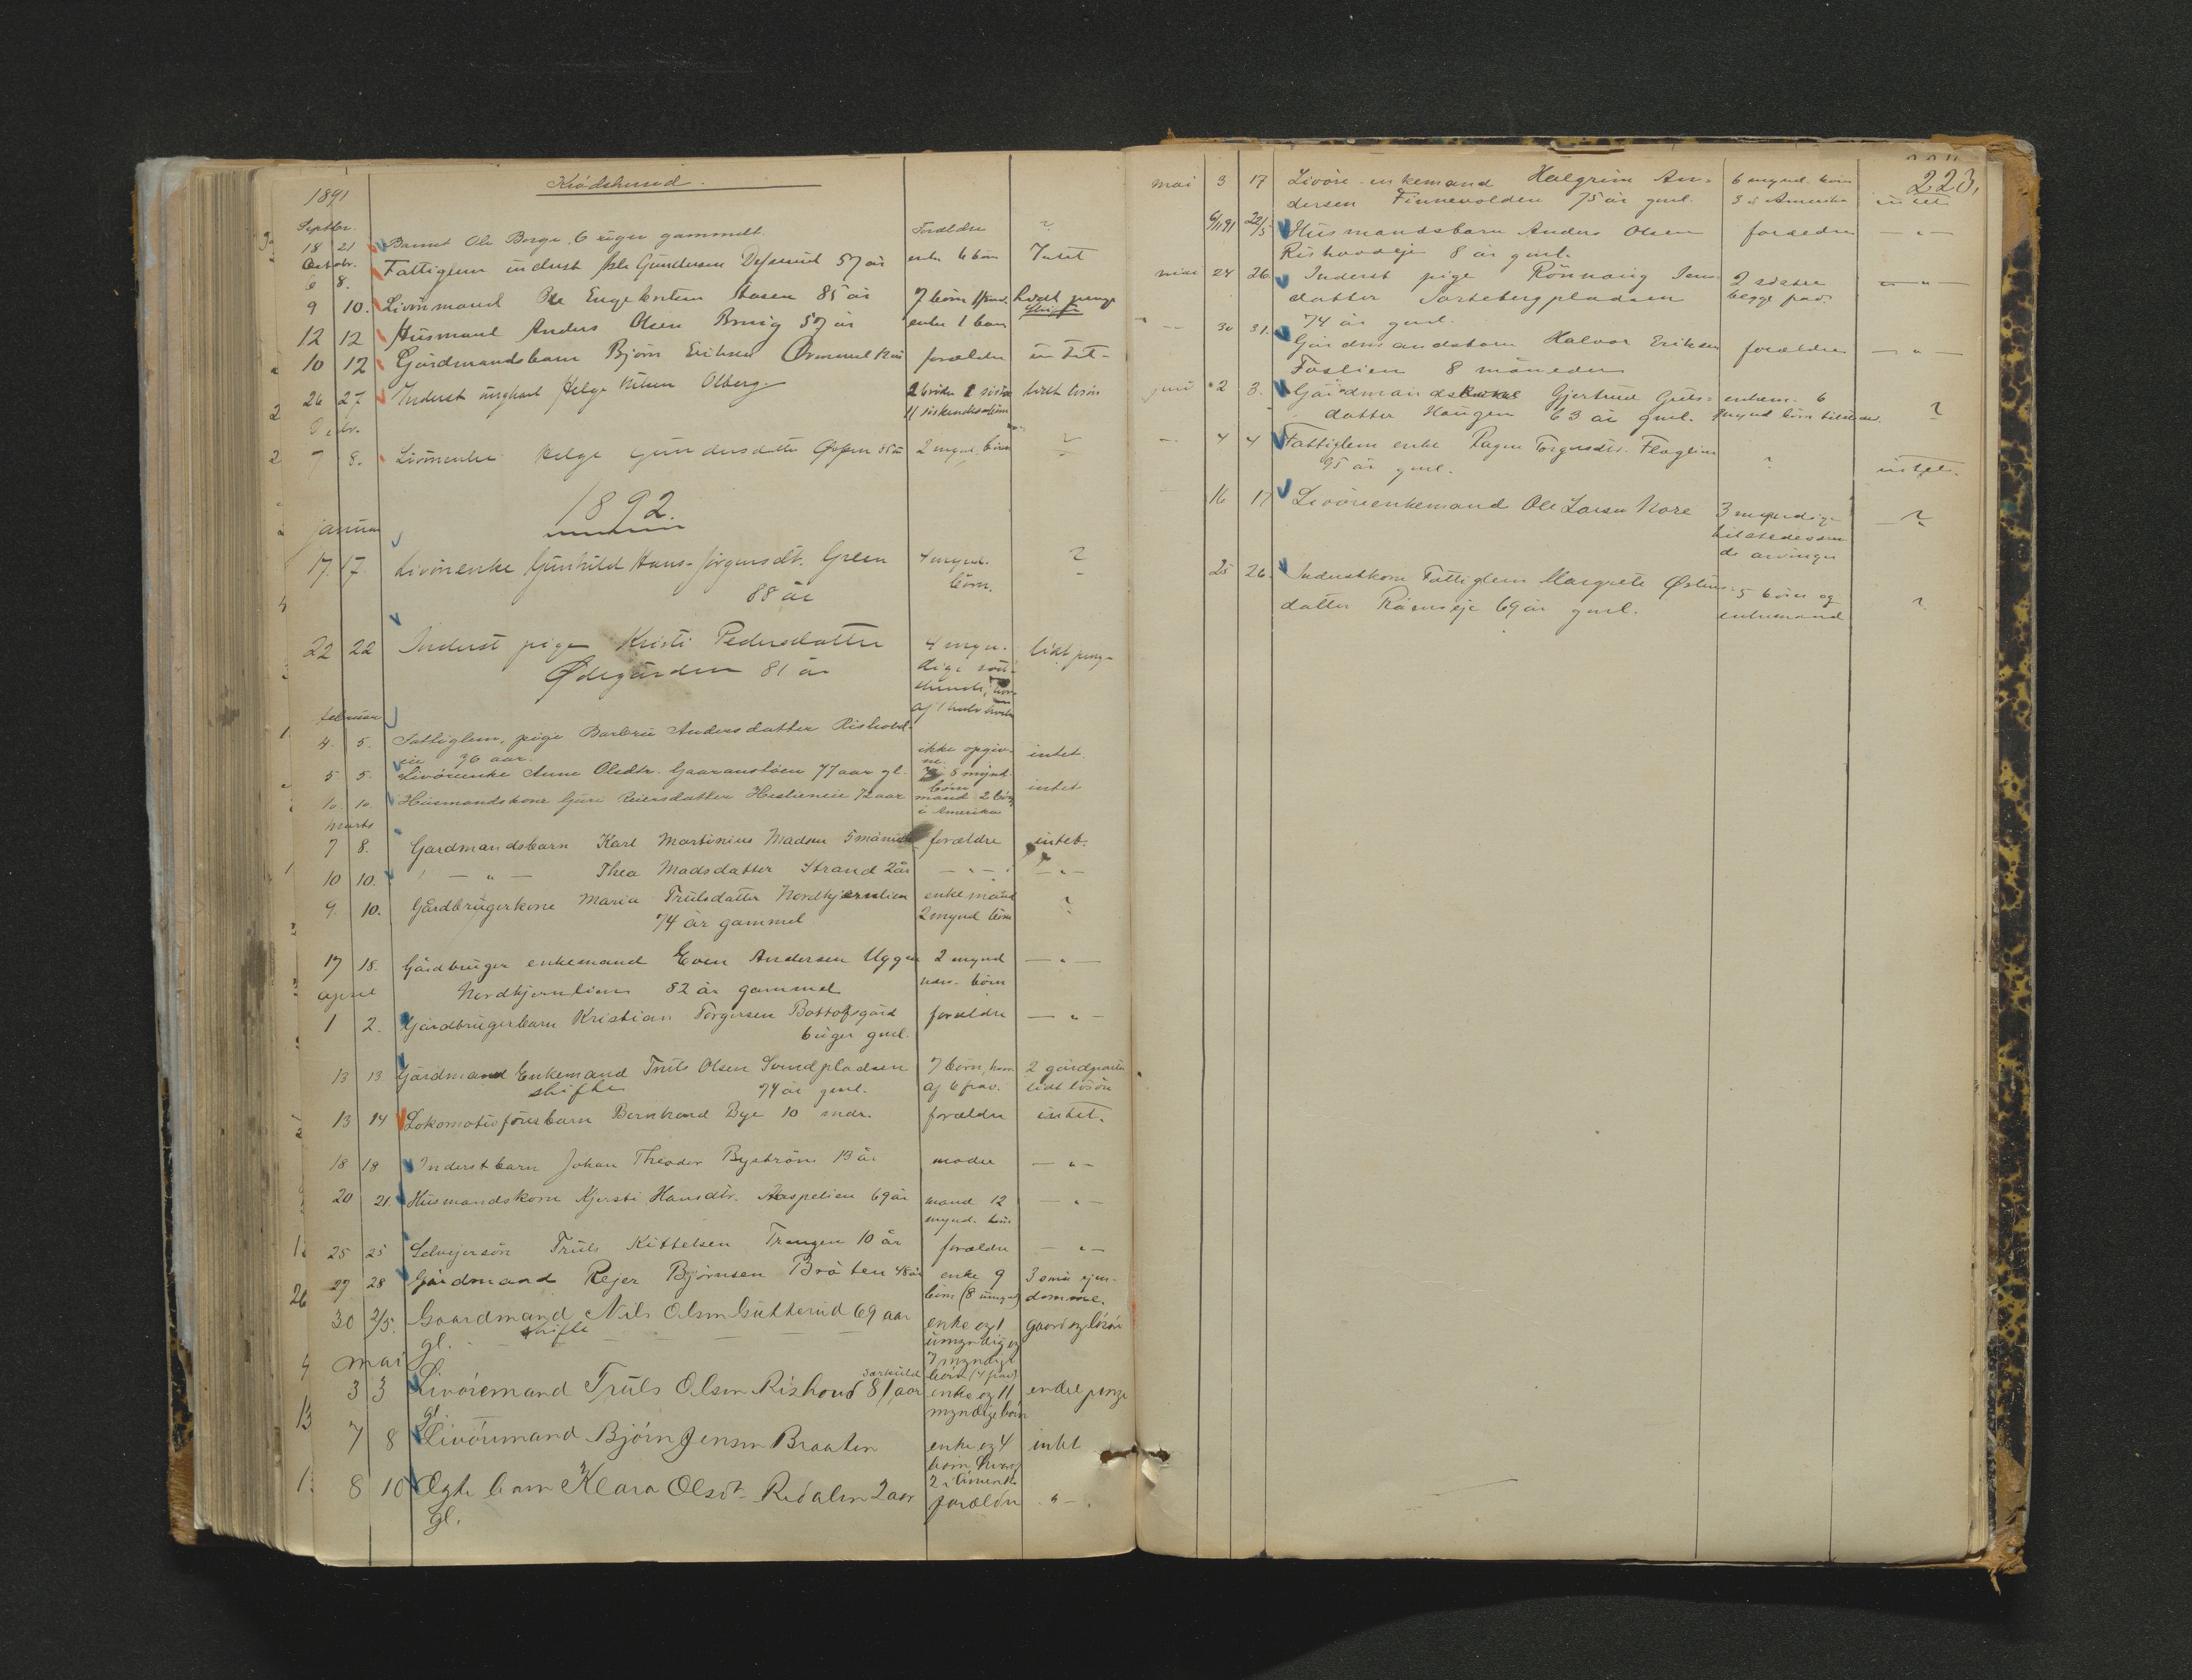 1891
Krödsherred.
Septbr.
18 21 Barnet Ole Borge 6 uger gammelt. Forældre ?
Octobr.
6 8. Fattiglem inderst Gundersen 57 år enke 6 børn Intet
9 10. Livörmand Ole Engebretsen Aasen 85 år 7 börn lidt penge
12 12 Husmand Anders Olsen 57 år enke 1 barn
10 12 Gårdmandsbarn Björn Eriksen forældre intet
26 27 Inderst ungkarl Helge Nilsen Olberg. 2 brödre 2 söstre lidt lösöre
11 siskendebörn
Decbr.
7 8. Livörenke Helge Gundersdatter 2 mynd. börn ?
1892.
januar
17. 17. Livörenke Gunhild Hans-Jörgensdt. Green 4 mynd. ?
88 år börn.
22 22 Inderst pige Kristi Pedersdatter 4 myn- lidt penge
Ødegården 81 år dige
af 1
februar
4. 5. Fattiglem, pige Barbrü Andersdatter Rishovd-
eie 36 aar. ikke opgiv- intet.
ne.
5 5. Livörenke Anne Olsdtr. Gaaranstöen 77 aar gl. 8 mynd.
börn intet
10. 10. Husmandskone Guri Reiersdatter Heslieneie 72 aar mand 2 börn
i Amerika
Marts
7 8. Gardmandsbarn Karl Martinius Madsen 5 måneder forældre intet.
10 10. — " — Thea Madsdatter Strand 2 år — " — — " —
9. 10. Gårdbrugerkone Maria Trulsdatter Nordhjernlien enkemand ?
74 år gammel 2 mynd börn
17 18. Gårdbruger enkemand Even Andersen Uggen 2 mynd — " —
Nordhjernlien 82 år gammel börn
april
1 2. Gårdbrugerbarn Kristian Torgersen Bottolfsgård forældre — " —
6 uger gml.
13 13 Gårdmand Enkemand Truls Olsen Sundpladsen 7 börn, hvor 2 gårdparter
skifte 74 år gml. af 6 frav. lidt lösöre
13 14 Lokomotivförerbarn Bernhard Bye 10 mdr. forældre intet.
18 18 Inderstbarn Johan Theodor Byström 13 år moder — " —
20 21. Husmandskone Kjersti Hansdtr. Aaspelien 69 år mand 12 — " —
mynd. börn
25 25 Selveiersön Truls Kittelsen Trangen 10 år forældre — " —
27 28 Gårdmand Rejer Björnsen Bråten 48 år enke 9 3 små ejen-
börn (8 umyn) domme.
30 2/5. Gaardmand Nils Olsen Gutterud 69 aar enke og 1 gaard og lösöre
gl. skifte umyndig og
7 myndige
mai börn (4 frav)
3 3 Livöremand Truls Olsen Rishovd 81 aar enke og 11 endel penge
gl. myndige börn
7 8 Livöremand Björn Jensen Braaten enke og 4 intet
börn hvoraf
2 i Amerika
8 10 Ægte barn Klara Olsdt. Redalen 2 aar forældre — " —
gl.
223.
mai 3 17 Livöre-enkemand Halgrim An- 6 mynd. börn
dersen Finnevolden 75 år gml. 3 i Amerika intet
6/11 91 22/5 Husmandsbarn Anders Olsen foreldre — " —
Rishovdeje 8 år gml.
mai 24 26. Inderst pige Rönnaug Jens- 2 söstre — " —
datter Sortebergpladsen begge frav.
74 år gml.
— 30 31. Gårdmandsbarn Halvor Eriksen forældre — " —
Foslien 8 måneder
juni 2 3. Gårdmandskone Gjertrud Guls- enkem. 6
datter Haugen 63 år gml. mynd börn tilstede. ?
— 4 4 Fattiglem enke Ragne Torgersdtr. Flaglien ?
95 år gml. intet.
16 17 Livörenkemand Ole Larsen Nore 3 myndige ?
tilstedeværen-
de arvinger
25 26. Inderstkone Fattiglem Margrete Østens- 5 börn og ?
datter Råenseje 69 år gml. enkemand